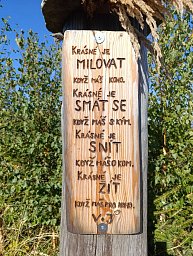 KRÁSNÉ JE
MILOVAT
KDYŽ MÁŠ KOHO.
KRÁSNÉ JE
SMÁT SE
KDYŽ MÁŠ S KÝM.
KRÁSNÉ JE
SNÍT
KDYŽ MÁŠ O KOM.
KRÁSNÉ JE
ŽÍT
KDYŽ MÁŠ PRO KOHO.